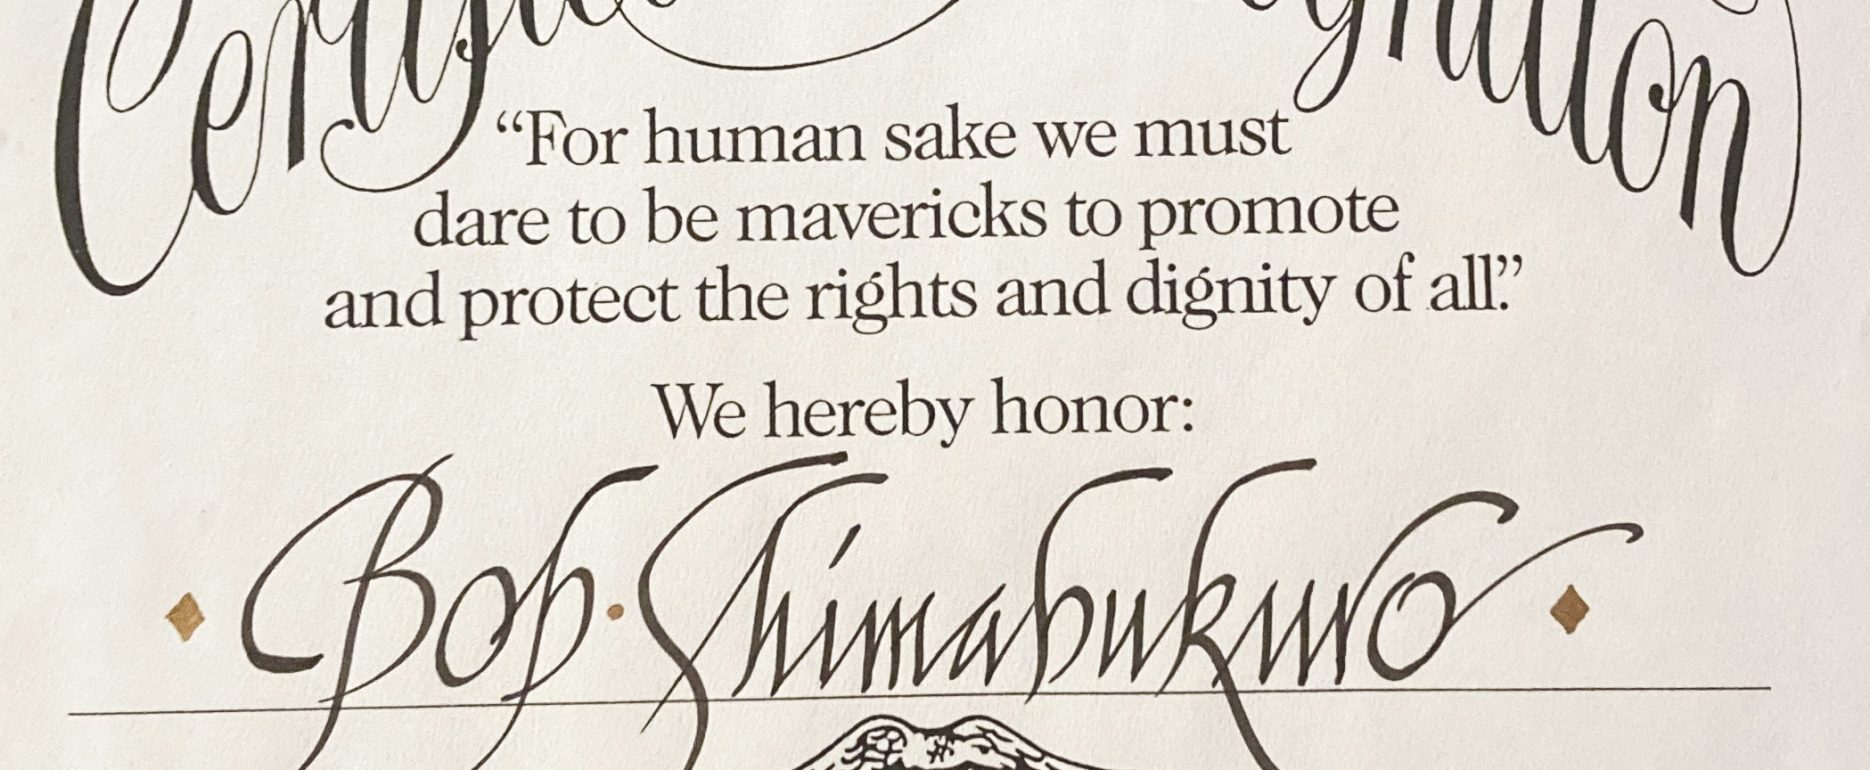 Certificate Recognition
“For human sake we must
dare to be mavericks to promote
and protect the rights and dignity of all.”
We hereby honor:
Bob Shimabukuro